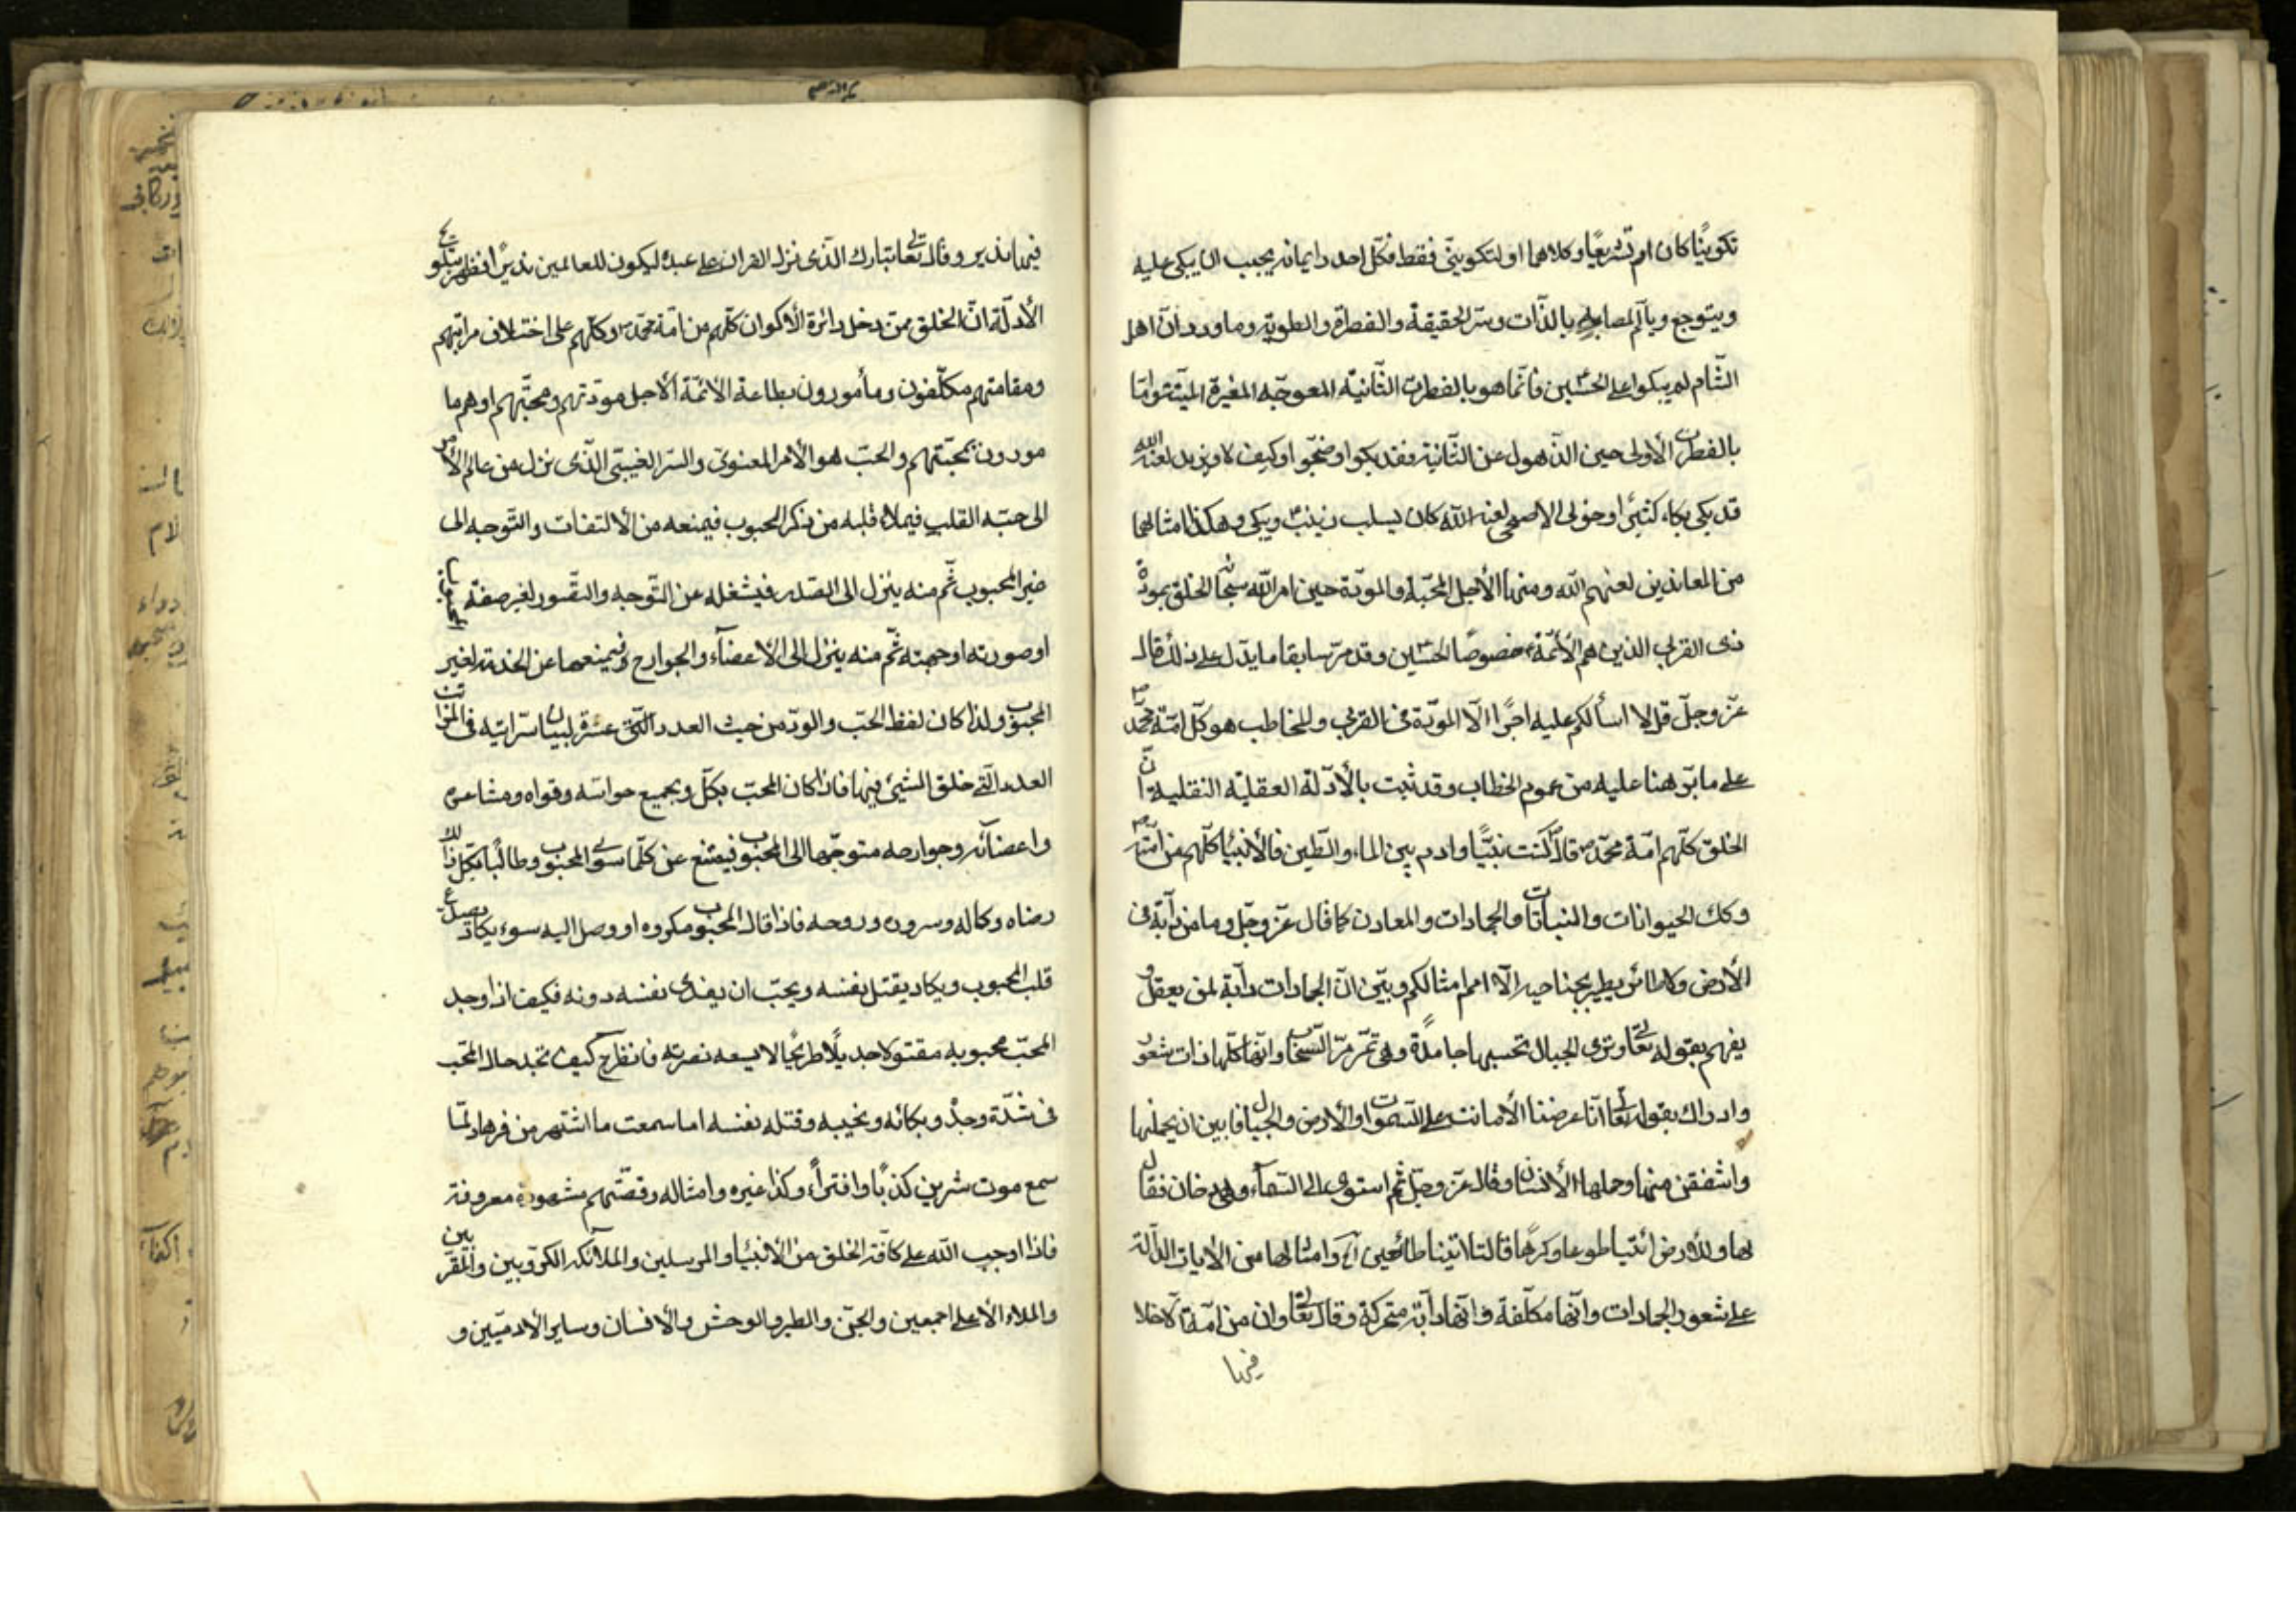 تكوينًا كان ام تشريعًا وكلاهما او لتكوينى فقط فكل احد دايما نه يجب ان يبكى عليه
ويتوجع ويألم لمصابه بالذّات وسرّ الحقيقة والفطرة والطوية وما ورد انّ اهل
الشّام لم يبكوا على الحسين فانّما هو بالفطرت الثّانيه المعوجّه المغيرة الميّتة وامّا
بالفطرت الأولى حين الذّهول عن الثّانية فقد بكوا وضجّوا وكيف لا ويزيد لعنه الله
قد بكى بكاء كثيرًا وخولى الاصبحى لعنه الله كان ليسلب زينب ويبكى وهكذا امثالهما
من المعاندين لعنهم الله ومنها الأجل المحبّة والمودّة حين امر الله سبحانه الخلق بمودّة
ذى القربى الذين هم الأئمّة خصوصًا الحسين وقد مرّ سابقا ما يدّل على ذلك قال
عزّ وجلّ قل لا اسألكم عليه اجرًا الّا المودّة فى القربى والمخاطب هو كلّ امّة محمّد ص
على ما نبّهنا عليه من عموم الخطاب وقد ثبت بالأدلّة العقليّه النقلية انّ
الخلق كلّهم امّة محمّد ص قال كنت نبيًّا وادم بين الماء والطّين فالأنبياء كلّهم من امّته ص
وكك الحيوانات والنباتات والجمادات والمعادن كما قال عزّ وجلّ وما من دآبّة فى
الأرض ولا طائر يطير بجناحيه الّا امم امثالكم وبيّن انّ الجمادات دآبّة لمن يعقل و
يفهم بقوله تعالى وترى الجبال تحسبها جامدةً وهى تمرّ مرّ السّحاب وانّها كلّها ذات شعور
وادراك بقوله تعالى انّا عرضنا الأمانت على السّموات والأرض والجبال فابين ان يحملنها
واشفقن منها وحملها الأنسان وقال عزّ وجلّ ثم استوى الى السّمآء وهى دخان فقال
لها وللأرض ائتيا طوعا وكرهًا قالتا اتينا طائعين وامثالها من الأيات الدّالّة
على شعور الجمادات وانّها مكلّفة وانّها دآبّة متحركة وقال تعالى وان من امّة الّا خلا
فيها
فيها نذير وقال تعالى تبارك الّذى نزل الفرقان على عبده ليكون للعالمين نذيرًا فظهر بتلك
الأدلّة انّ الخلق ممّن دخل دائرة الأكوان كلّهم من امّة محمّد ص وكلّهم على اختلاف مراتبهم
ومقامتهم مكلّفون ومأمورون بطاعة الأئمّة لاجل مودّتهم ومحبّتهم اوهم ما
مورون بمحبّتهم والحبّ هو الأمر المعنوىّ والسّر الغيبىّ الّذى نزل من عالم الأمر
الى حبّة القلب فيملاء قلبه من ذكر المحبوب فيمنعه من الألتفات والتّوجه الى
غير المحبوب ثّم منه ينزل الى الصّدر فيشغله عن التّوجه والتّصور لغير صفة المحبوب
او صورته او جهته ثّم منه ينزل الى الأعضآء والجوارح فيمنعها عن الخدمة لغير
المحبوب ولذا كان لفظ الحّب والودّ من حيث العدد عشرة لبيان سرايته فى المراتب
العدد الّتى خلق الشيئ فيها فاذا كان المحبّ بكلّ وبجميع حواسّه وقواه ومشاعره
واعضآئه وجوارحه متوجّها الى المحبوب فيمتنع عن كلّما سوى المحبوب وطالبًا بكّل ذلك
رضاه وكماله وسروره وروحه فاذا قال المحبوب مكروه او وصل اليه سوء يكاد
قلب المحبوب ويكاد يقتل نفسه ويحبّ ان يفدى نفسه دونه فكيف اذا وجد
المحبّ محبوبه مقتولا جديلًا طريحًا لا يسعه نصرته فانظر كيف تجد حال المحّب
فى شدّة وجدْ وبكائه ونحيبه وقتله نفسه اما سمعت ما اشتهر من فرهاد لمّا
سمع موت شرين كذبًا وافترآءً وكذا غيره وامثاله وقصّتهم مشهوده معروفة
فاذا اوجب الله على كافّة الخلق من الأنبياء والمرسلين والملآئكه الكرّوبين والمقربين
والملاء الأعلى اجمعين والجنّ والطير والوحش والأنسان وساير الأدميّين و